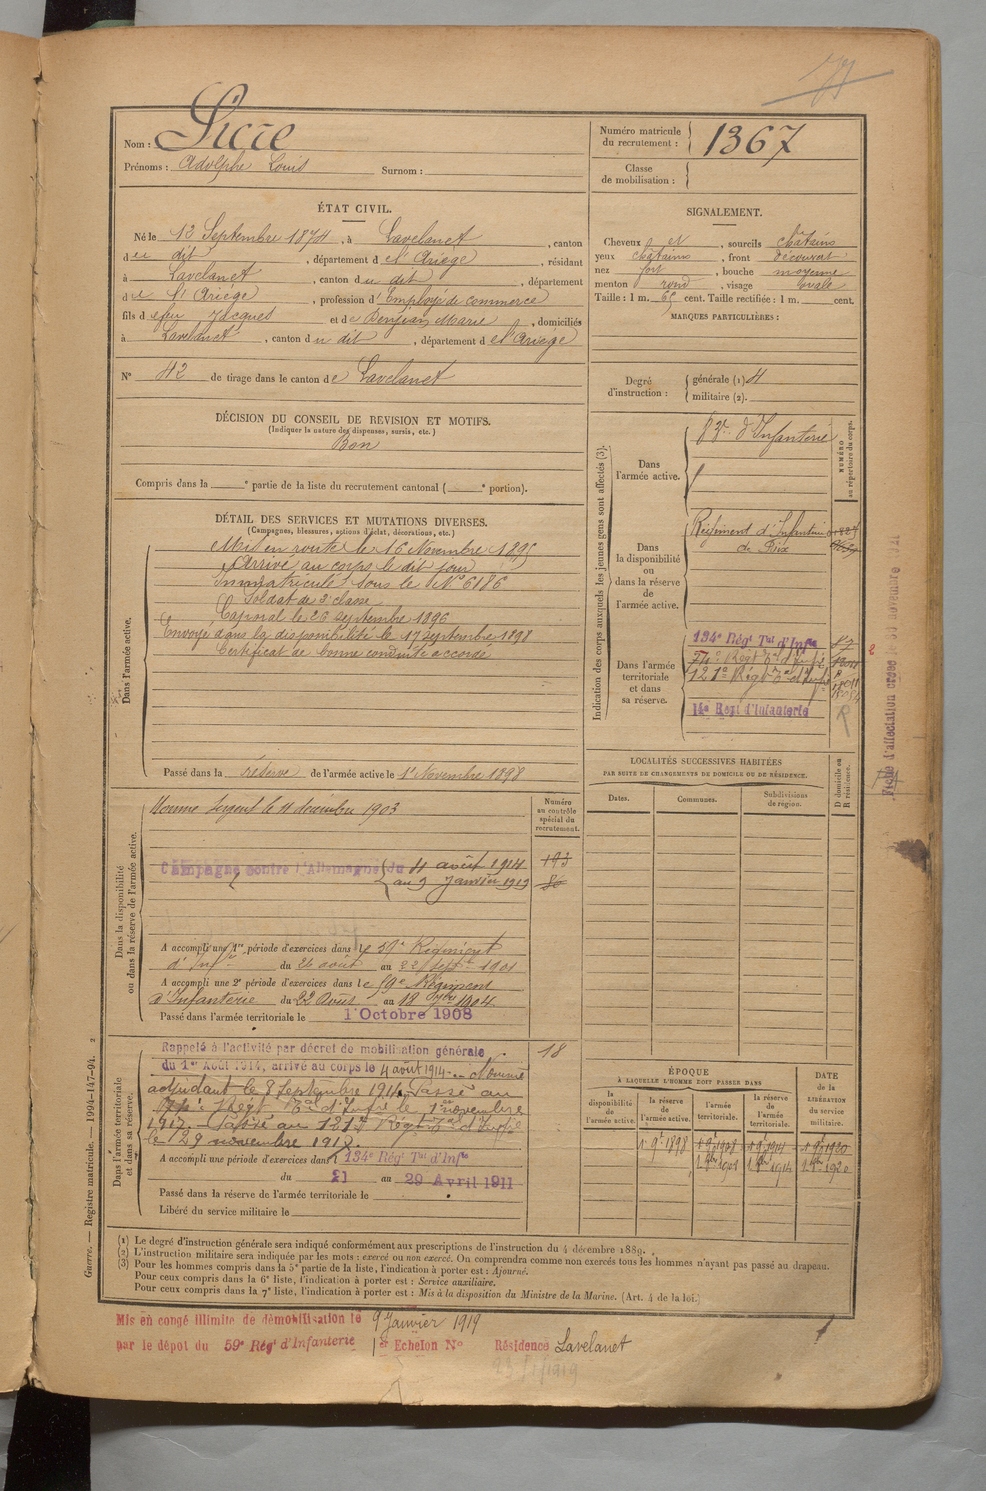 Nom : Sicre
Prénoms : Adolphe Louis Surnom :
Numéro matricule du recrutement : 1367
Classe de mobilisation :
ÉTAT CIVIL.
Né le 13 Septembre 1874, à Lavelanet, canton
du dit, département de l'Ariège, résidant
à Lavelanet, canton du dit, département
de l'Ariège, profession d'Employé de commerce
fils de feu Jacques et de Benjean Marie, domiciliés
à Lavelanet, canton du dit, département de l'Ariège
N° 42 de tirage dans le canton de Lavelanet
SIGNALEMENT.
Cheveux et, sourcils châtains
yeux châtains, front découvert
nez fort, bouche moyenne
menton rond, visage ovale
Taille : 1 m. 65 cent. Taille rectifiée : 1 m. cent.
MARQUES PARTICULIÈRES :
Degré d'instruction : générale (1) 4
militaire (2).
DÉCISION DU CONSEIL DE REVISION ET MOTIFS.
(Indiquer la nature des dispenses, sursis, etc.)
Bon
Compris dans la e partie de la liste du recrutement cantonal ( e portion).
DÉTAIL DES SERVICES ET MUTATIONS DIVERSES.
(Campagnes, blessures, actions d'éclat, décorations, etc.)
Dans l'armée active.
Mis en route le 16 Novembre 1895
Arrivé au corps le dit jour
Immatriculé sous le N° 6186
Soldat de 2e classe
Caporal le 20 septembre 1896
Envoyé dans la disponibilité le 17 septembre 1898
Certificat de bonne conduite accordé
Passé dans la réserve de l'armée active le 1er Novembre 1898
Indication des corps auxquels les jeunes gens sont affectés (3).
NUMÉRO au répertoire du corps.
Dans l'armée active.
d'Infanterie
Dans la disponibilité ou dans la réserve de l'armée active.
Régiment d'Infanterie
de Foix
Dans l'armée territoriale et dans sa réserve.
134e Régt Tal d'Infie
74e Régt Tal d'Infie
121e Régt Tal d'Infie
14e Regt d'Infanterie
Dans la disponibilité ou dans la réserve de l'armée active.
Numéro au contrôle spécial du recrutement.
Nommé Sergent le 11 décembre 1903
Campagne contre l'Allemagne du 4 août 1914
au 9 Janvier 1919
A accompli une 1re période d'exercices dans le 59e Régiment
d'Infie du 26 août au 22 Sept 1901
A accompli une 2e période d'exercices dans le 59e Régiment
d'Infanterie du 22 Août au 18 7bre 1904
Passé dans l'armée territoriale le 1er Octobre 1908
LOCALITÉS SUCCESSIVES HABITÉES
PAR SUITE DE CHANGEMENTS DE DOMICILE OU DE RÉSIDENCE.
Dates. Communes. Subdivisions de région.
D domicile ou R résidence.
Dans l'armée territoriale et dans sa réserve.
Rappelé à l'activité par décret de mobilisation générale 18
du 1er Août 1914, arrivé au corps le 4 août 1914. Nommé
adjudant le 8 Septembre 1914. Passé au
74e Régt Tal d'Infie le 1er novembre
1917. Passé au 121e Régt Tal d'Infie
le 29 novembre 1918.
A accompli une période d'exercices dans l 134e Régt Tal d'Infie
du 21 au 29 Avril 1911
Passé dans la réserve de l'armée territoriale le
Libéré du service militaire le
ÉPOQUE
À LAQUELLE L'HOMME DOIT PASSER DANS
DATE de la LIBÉRATION du service militaire.
la disponibilité de l'armée active. la réserve de l'armée active. l'armée territoriale. la réserve de l'armée territoriale.
(1) Le degré d'instruction générale sera indiqué conformément aux prescriptions de l'instruction du 4 décembre 1889.
(2) L'instruction militaire sera indiquée par les mots : exercé ou non exercé. On comprendra comme non exercés tous les hommes n'ayant pas passé au drapeau.
(3) Pour les hommes compris dans la 5e partie de la liste, l'indication à porter est : Ajourné.
Pour ceux compris dans la 6e liste, l'indication à porter est : Service auxiliaire.
Pour ceux compris dans la 7e liste, l'indication à porter est : Mis à la disposition du Ministre de la Marine. (Art. 4 de la loi.)
Guerre. — Registre matricule. — 1994-147-94.
Mis en congé illimité de démobilisation le 9 Janvier 1919
par le dépot du 59e Régt d'Infanterie 1er Echelon N° Résidence Lavelanet